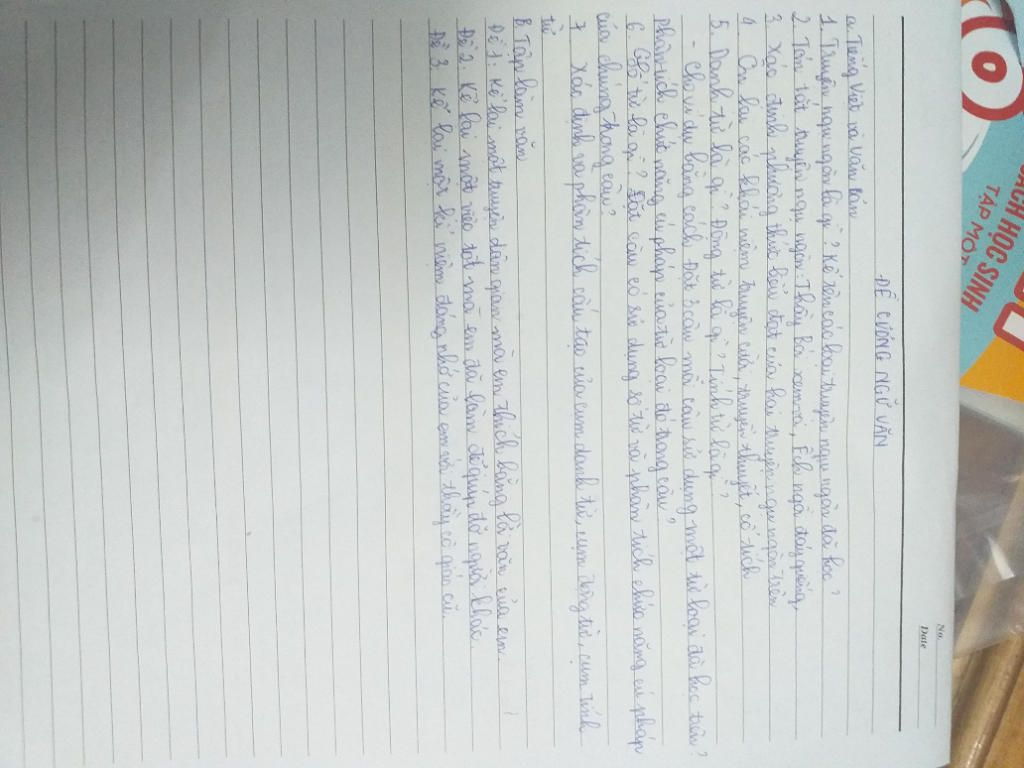 No.
Date
ĐỀ CƯƠNG NGỮ VĂN
a. Tiếng Việt và Văn bản
1. Truyện ngụ ngôn là gì? Kể tên các loại truyện ngụ ngôn đã học?
2. Tóm tắt truyện ngụ ngôn: Thầy bói xem voi, Ếch ngồi đáy giếng,
3. Xác định phương thức biểu đạt của hai truyện ngụ ngôn trên
4. Ôn lại các khái niệm truyện cười, truyền thuyết, cổ tích
5. Danh từ là gì? Động từ là gì? Tính từ là gì?
- Cho ví dụ bằng cách đặt 3 câu mỗi câu sử dụng một từ loại đã học trên?
phân tích chức năng cú pháp của từ loại đó trong câu?
6. Số từ là gì? Đặt câu có sử dụng số từ và phân tích chức năng cú pháp
của chúng trong câu?
7. Xác định và phân tích cấu tạo của cụm danh từ, cụm động từ, cụm tính
từ
B. Tập làm văn
Đề 1. Kể lại một truyện dân gian mà em thích bằng lời văn của em.
Đề 2. Kể lại một việc tốt mà em đã làm để giúp đỡ người khác.
Đề 3. Kể lại một kỉ niệm đáng nhớ của em với thầy cô giáo cũ.
SÁCH HỌC SINH
TẬP MỘT